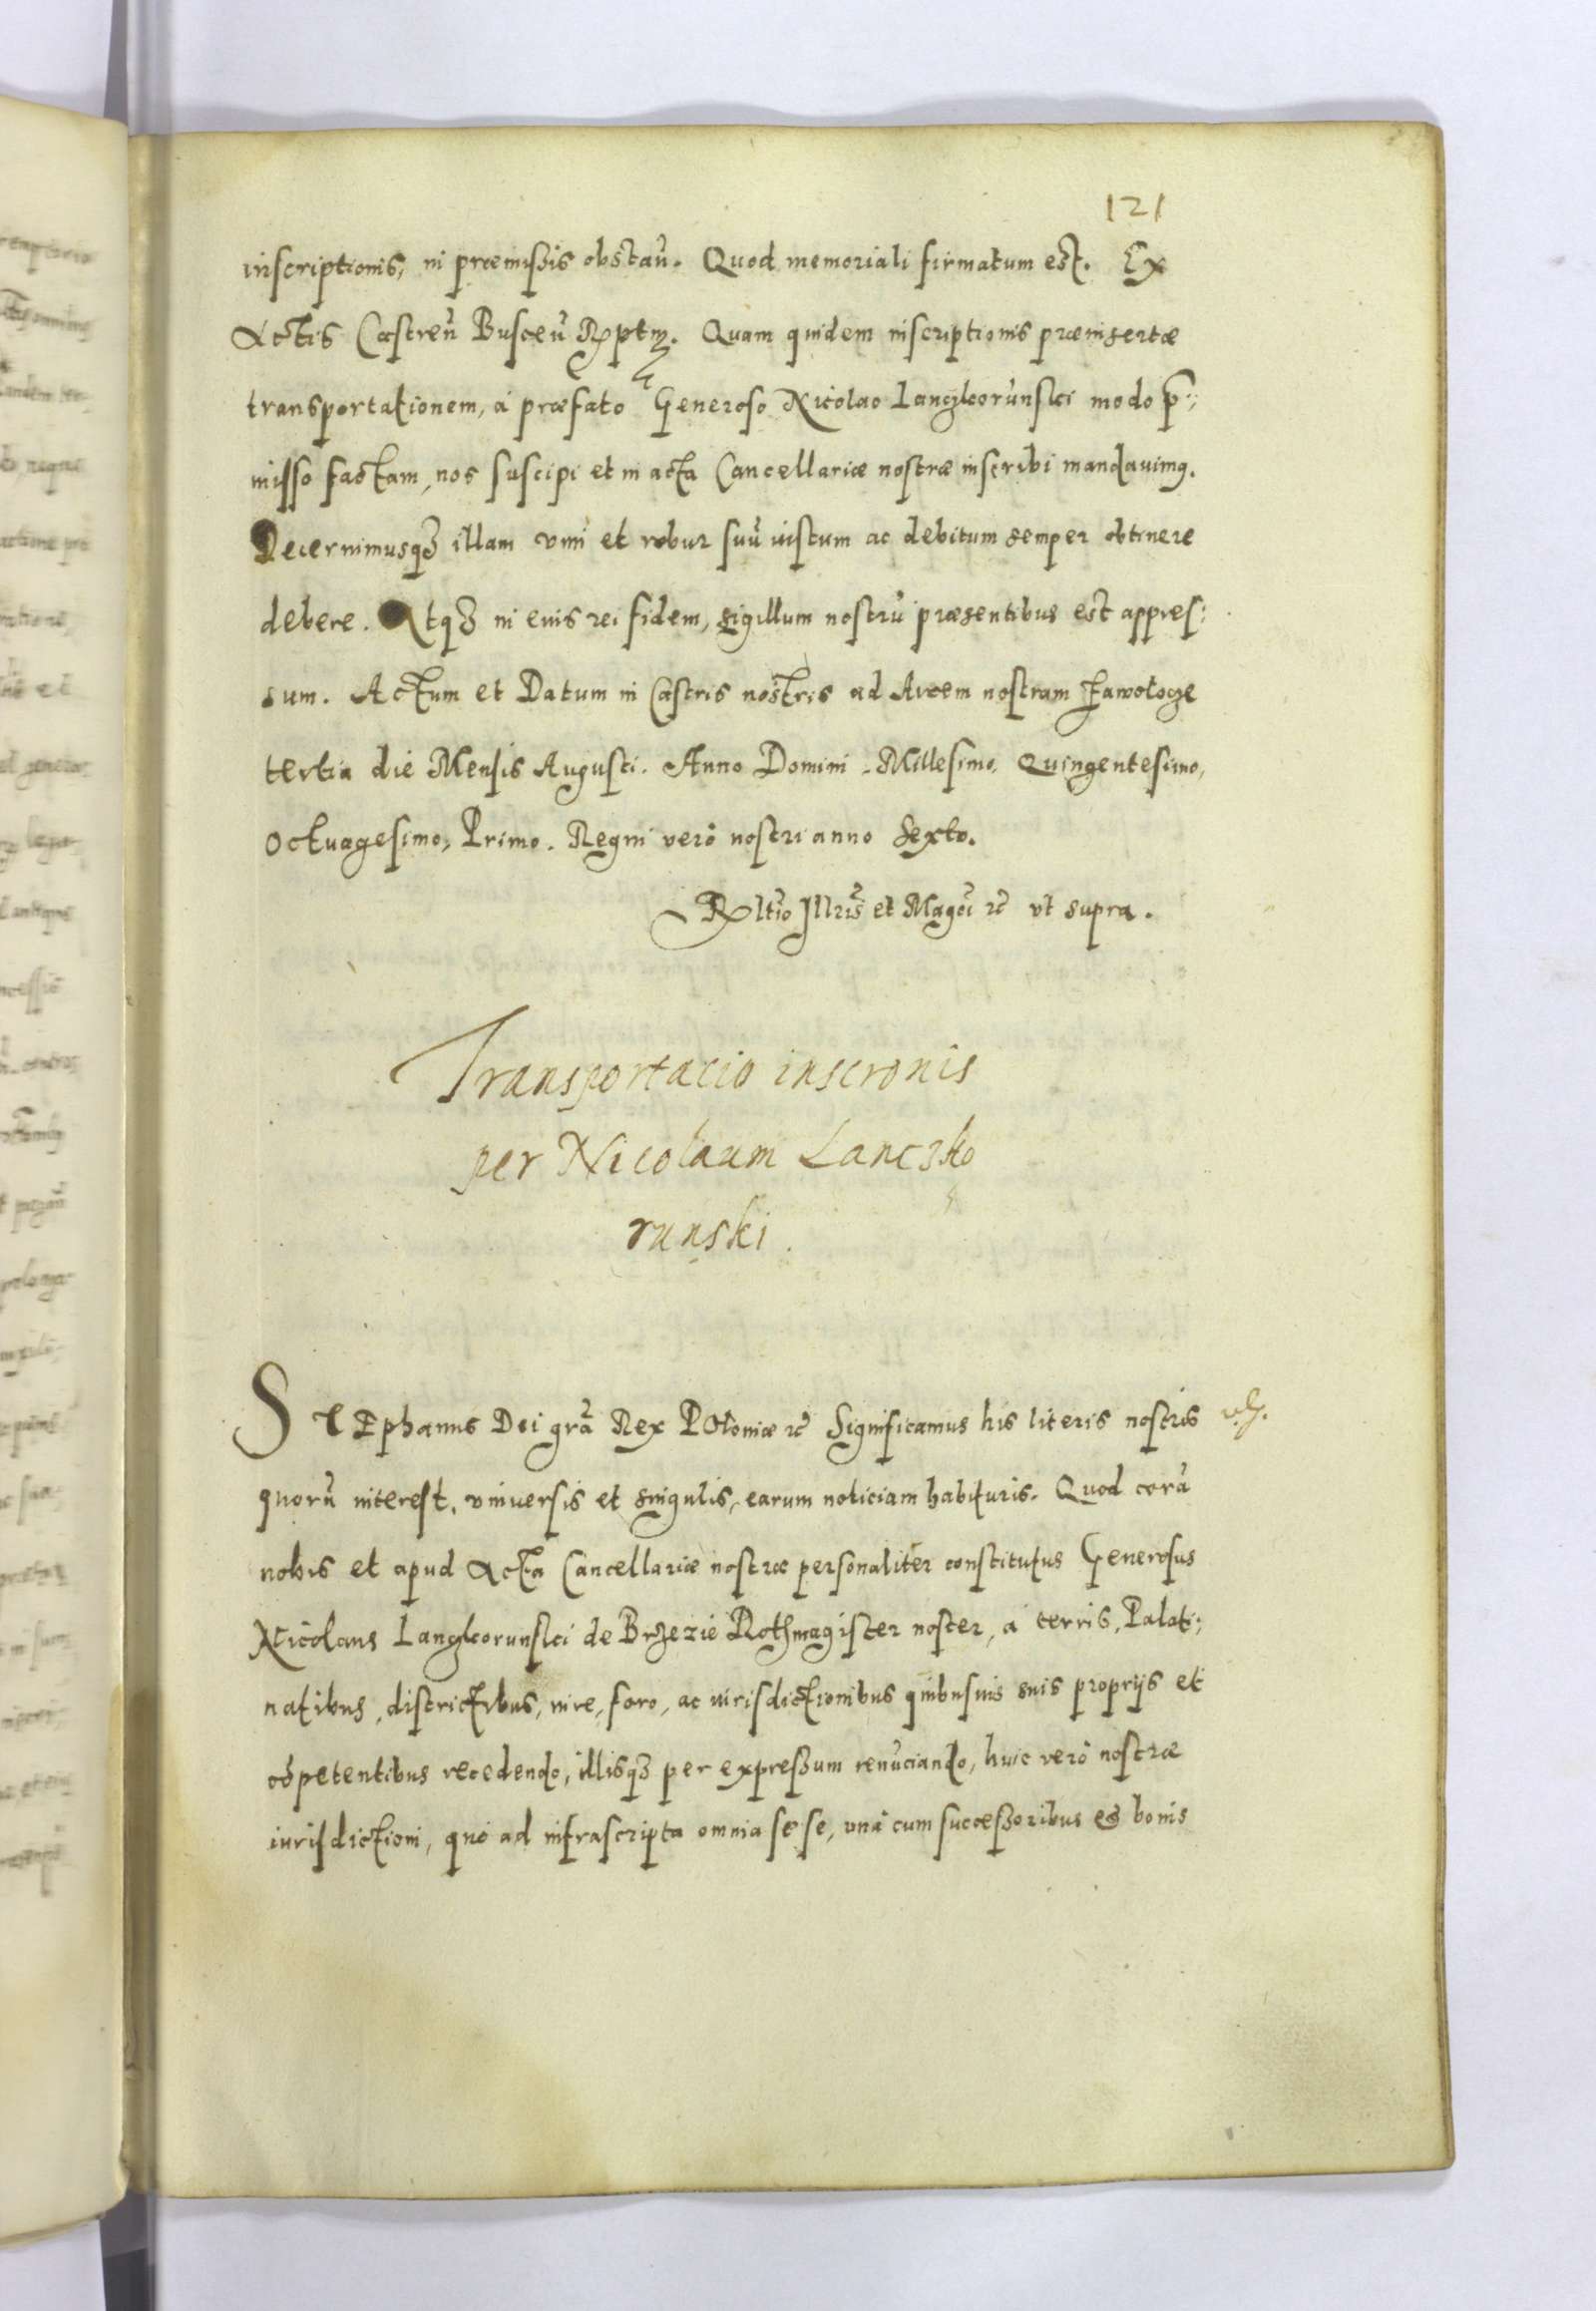 121
inscriptionis, in præmissis obstan̄. Quod memoriali firmatum est. Ex
Actis Castren̄ Buscen̄ Rptm̃. Quam quidem inscriptionis præinsertæ
transportationem, à præfato Generoso Nicolao Lanczkorunski modo p̃:
misso factam, nos suscipi et in acta Cancellariæ nostræ inscribi mandauimꝰ.
Decernimusqꝫ illam vim et robur suū iustum ac debitum semper obtinere
debere. Atqꝫ in eius rei fidem, sigillum nostrū præsentibus est appres:
sum. Actum et Datum in Castris nostris ad Arcem nostram Zawolocze
tertia die Mensis Augusti. Anno Domini. Millesimo. Quingentesimo,
Octuagesimo, Primo. Regni verò nostri anno Sexto.
Rltio Illris et Magci ꝛc̄ vt supra.
Transportacio inscronis
per Nicolaum Lanczko
runski.
STEphanus Dei grā Rex POloniæ ꝛc̄ Significamus his literis nostris
quorū interest, vniuersis et singulis, earum noticiam habituris. Quod corā
nobis et apud Acta Cancellariæ nostræ personaliter constitutus Generosus
Nicolaus Lanczkorunski de Brzezie Rothmagister noster, à terris, Palati:
natibus, districtibus, iure, foro, ac iurisdictionibus quibusuis suis proprijs et
cōpetentibus recedendo, illisqꝫ per expressum renūciando, huic verò nostræ
iurisdictioni, quò ad infrascripta omnia sese, vnà cum successoribus et bonis